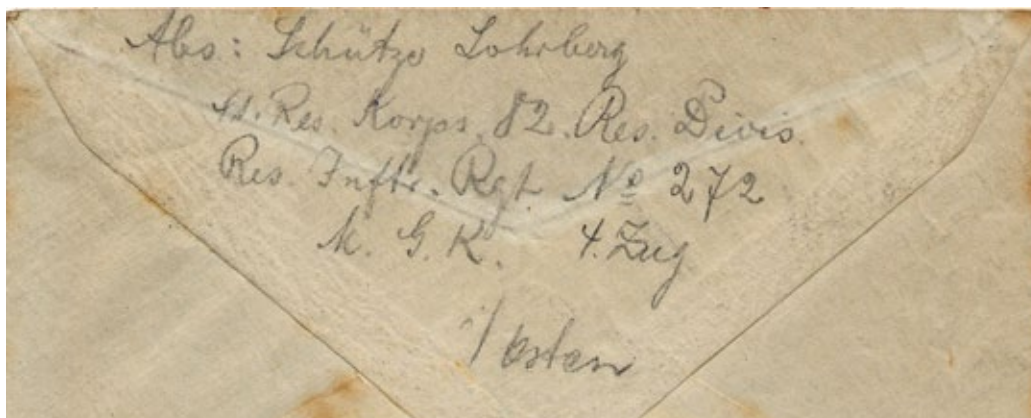 Abs: Schütze Lohrberg
41. Res. Korps. 82. Res. Divis.
Res. Inftr. Rgt. No 272
M. G. K. 4. Zug
i/ Osten